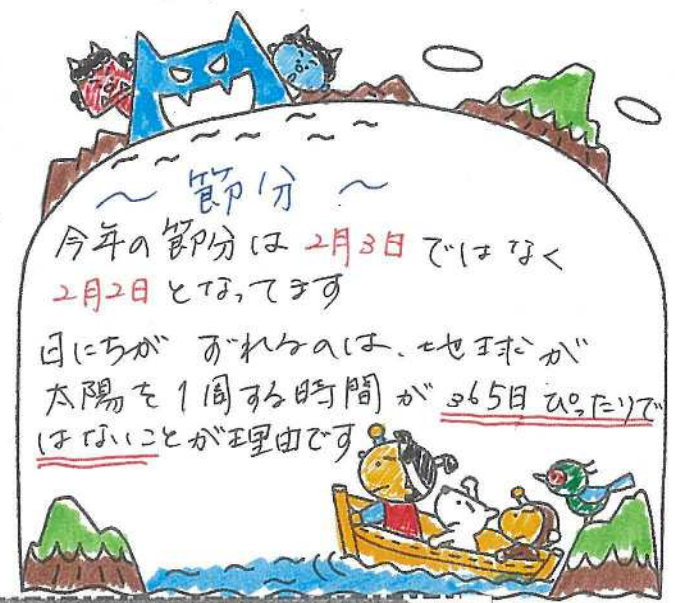 ～ 節分 ～
今年の節分は 2月3日 ではなく
2月2日 となってます
日にちが ずれるのは、地球が
太陽を1周する時間が 365日 ぴったりで
はないことが理由です